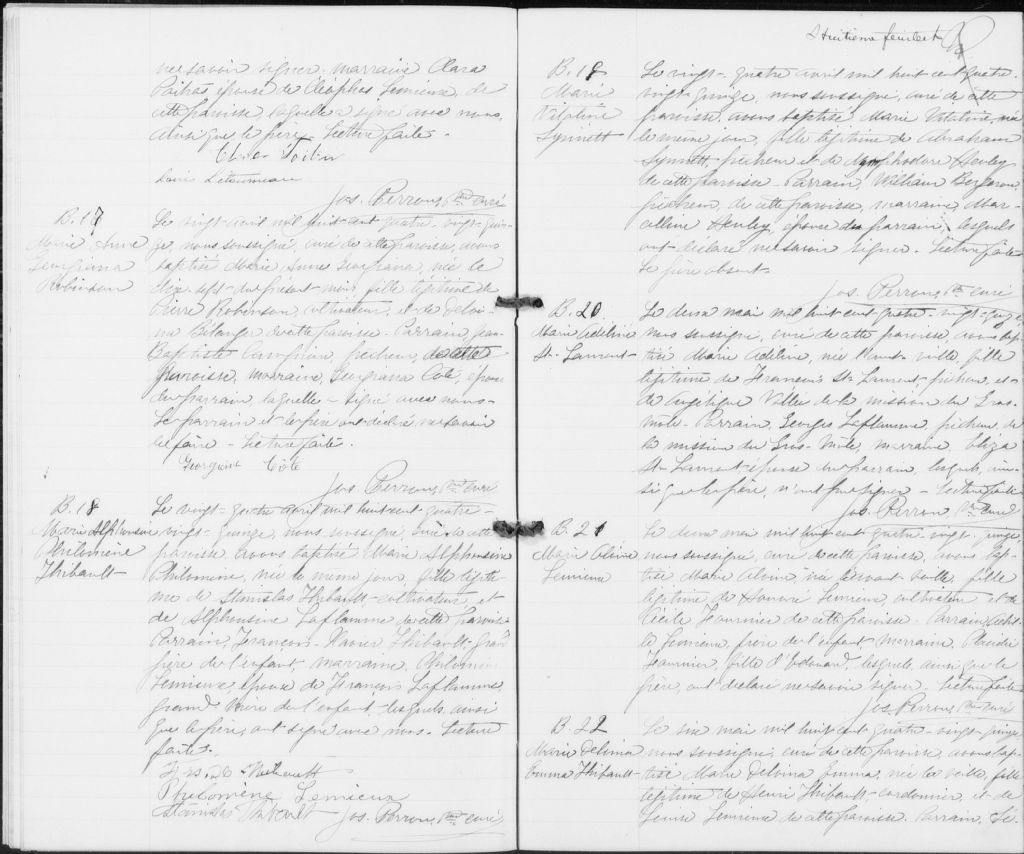 ne savoir signer. marraine Clara
épouse de Cléophas Lemieux, de
cette paroisse, laquelle a signé avec nous,
ainsi que le père. Lecture faite.
Louis Létourneau
Jos. Perron, Ptre curé
B. 17
Marie Anne
Georgiana
Robinson
Le vingt avril mil huit cent quatre-vingt-quin-
ze, nous soussigné, curé de cette paroisse, avons
baptisé Marie Anne Georgiana, née le
dix-sept du présent mois, fille légitime de
Pierre Robinson, cultivateur, et de
Bélanger de cette paroisse. Parrain, Jean-
Baptiste pêcheur, de cette
paroisse, marraine, Georgiana Coté, épouse
du parrain, laquelle a signé avec nous.
Le parrain et le père ont déclaré ne savoir
le faire. Lecture faite.
Georgiana Côté
Jos. Perron, Ptre curé
B. 18
Marie Alphonsine
Philomène
Thibault
Le vingt-quatre avril mil huit cent quatre-
vingt-quinze, nous soussigné, curé de cette
paroisse avons baptisé Marie Alphonsine
Philomène, née le même jour, fille légiti-
me de Stanislas Thibault, cultivateur, et
de Alphonsine Laflamme de cette paroisse
Parrain, François-Xavier Thibault, grand
père de l'enfant, marraine, Philomène
Lemieux, épouse de François Laflamme,
grand mère de l'enfant, lesquels, ainsi
que le père, ont signé avec nous. Lecture
faite.
Philomène Lemieux
Stanislas Thibault Jos. Perron, Ptre curé
Huitième feuillet
B. 19
Marie
Vitaline
Synnett
Le vingt-quatre avril mil huit cent quatre-
vingt-quinze, nous soussigné, curé de cette
paroisse, avons baptisé Marie Vitaline, née
le même jour, fille légitime de Abraham
Synnett, pêcheur et de Henley
de cette paroisse. Parrain, William
pêcheur, de cette paroisse, marraine, Mar-
celline Henley, épouse du parrain, lesquels
ont déclaré ne savoir signer. Lecture faite
Le père absent.
Jos. Perron, Ptre curé
B. 20
Marie Adéline
St-Laurent
Le deux mai mil huit cent quatre-vingt-quinze,
nous soussigné, curé de cette paroisse, avons bap-
tisé Marie Adéline, née l'avant-veille, fille
légitime de François St-Laurent, pêcheur, et
de Angélique de la mission du Gros-
Mâle. Parrain, Georges Laflamme, pêcheur, de
la mission du Gros-Mâle, marraine, Eliza
St-Laurent, épouse du parrain, lesquels, ain-
si que le père, n'ont pu signer. Lecture faite
Jos. Perron, Ptre curé
B. 21
Marie Alvine
Lemieux
Le deux mai mil huit cent quatre-vingt-quinze,
nous soussigné, curé de cette paroisse, avons bap-
tisé Marie Alvine, née l'avant-veille, fille
légitime de Honoré Lemieux, cultivateur et de
Cécile Fournier de cette paroisse. Parrain,
Lemieux, frère de l'enfant, marraine, Claudia
Fournier, fille d'Edouard, lesquels, ainsi que le
père, ont déclaré ne savoir signer. Lecture faite
Jos. Perron, Ptre curé
B. 22
Marie Delvina
Emma Thibault
Le six mai mil huit cent quatre-vingt-quinze,
nous soussigné, curé de cette paroisse, avons bap-
tisé Marie Delvina Emma, née la veille, fille
légitime de Henri Thibault, cordonnier, et de
Louise Lemieux de cette paroisse. Parrain,